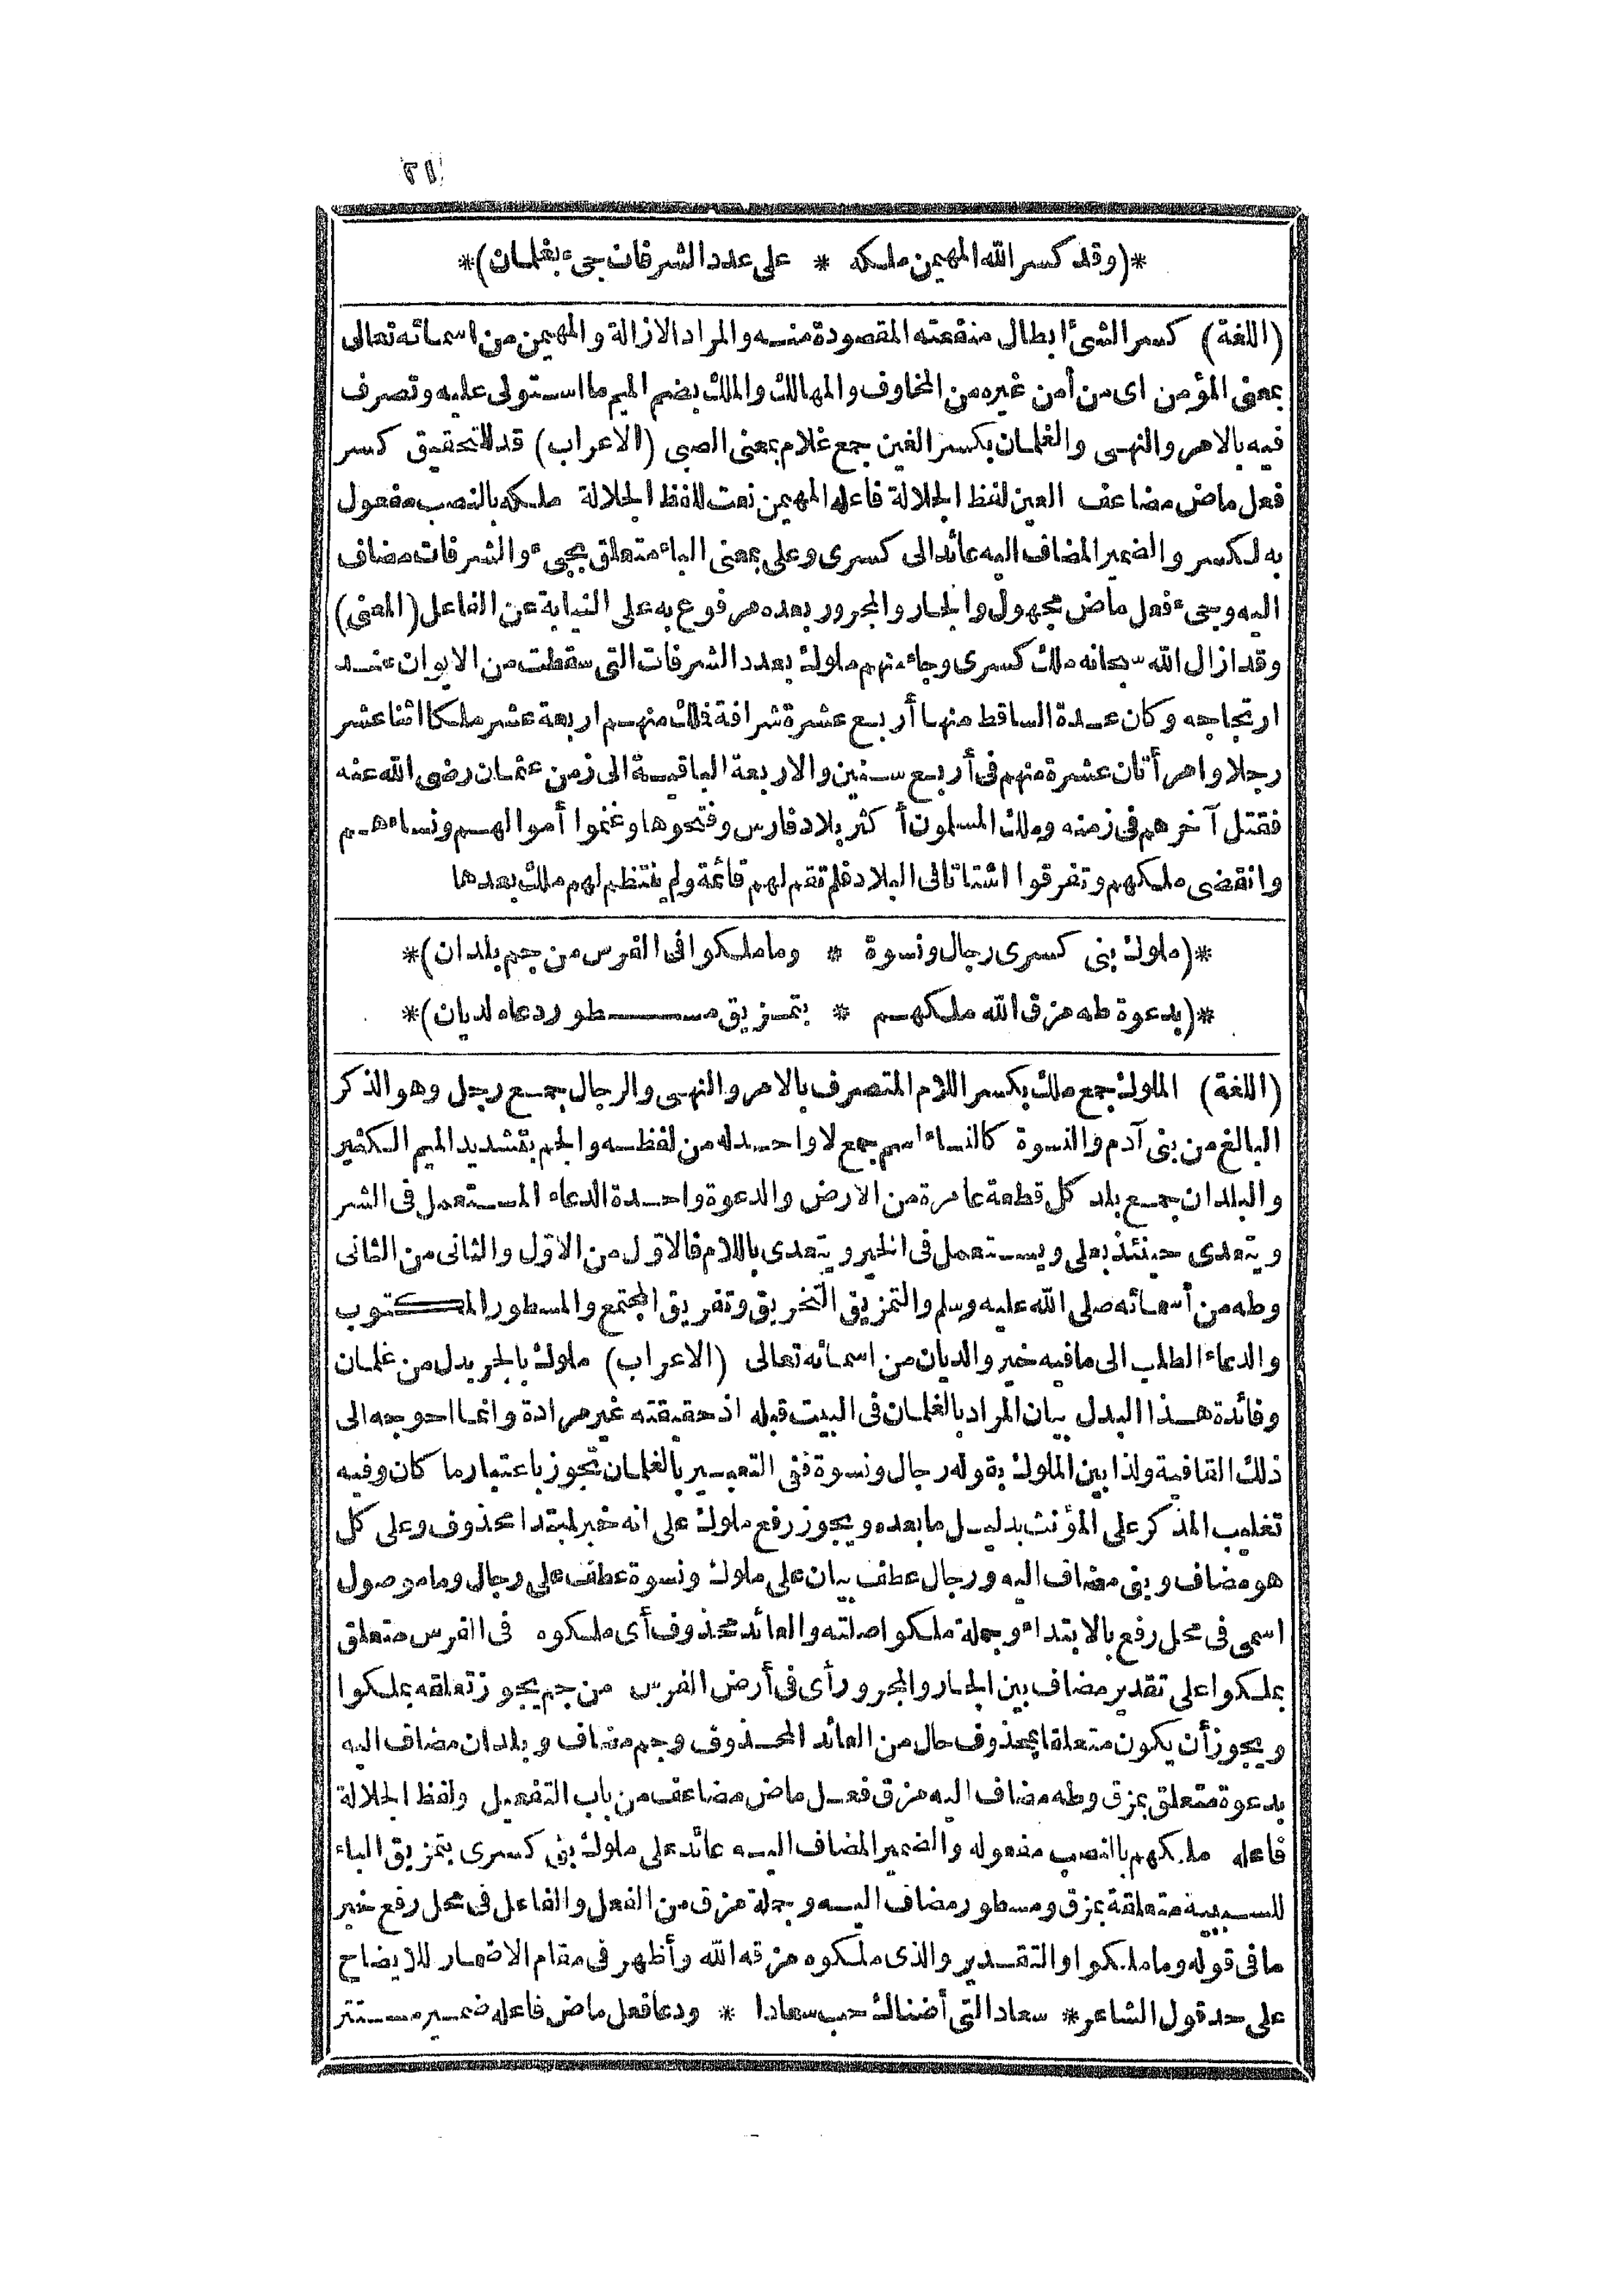 ٢١
*(وقد كسر الله المهيمن ملكه * على عدد الشرفات جىء بغلمان)*
(اللغة) كسر الشئ ابطال منفعته المقصودة منه والمراد الازالة والمهيمن من اسمائه تعالى
بمعنى المؤمن اى من أمن غيره من المخاوف والمهالك والملك بضم الميم ما استولى عليه وتصرف
فيه بالامر والنهى والغلمان بكسر الغين جمع غلام بمعنى الصبى (الاعراب) قد للتحقيق كسر
فعل ماض مضاعف العين لفظ الجلالة فاعله المهيمن نعت للفظ الجلالة ملكه بالنصب مفعول
به لكسر والضمير المضاف اليه عائد الى كسرى وعلى بمعنى الباء متعلق بجىء والشرفات مضاف
اليه وجىء فعل ماض مجهول والجار والمجرور بعده مرفوع به على النيابة عن الفاعل (المعنى)
وقد ازال الله سبحانه ملك كسرى وجاء منهم ملوك بعدد الشرفات التى سقطت من الايوان عند
ارتجاجه وكان عدة الساقط منها أربع عشرة شرافة فملك منهم اربعة عشر ملكا اثنا عشر
رجلا وامرأتان عشرة منهم فى أربع سنين والاربعة الباقية الى زمن عثمان رضى الله عنه
فقتل آخرهم فى زمنه وملك المسلمون أكثر بلاد فارس وفتحوها وغنموا أموالهم ونساءهم
وانقضى ملكهم وتفرقوا اشتاتا فى البلاد فلم تقم لهم قائمة ولم ينتظم لهم ملك بعدها
*(ملوك بنى كسرى رجال ونسوة * وما ملكوا فى الفرس من جم بلدان)*
*(بدعوة طه مزق الله ملكهم * بتمزيق مسطور دعاه لديان)*
(اللغة) الملوك جمع ملك بكسر اللام المتصرف بالامر والنهى والرجال جمع رجل وهو الذكر
البالغ من بنى آدم والنسوة كالنساء اسم جمع لا واحد له من لفظه والجم بتشديد الميم الكثير
والبلدان جمع بلد كل قطعة عامرة من الارض والدعوة واحدة الدعاء المستعمل فى الشر
ويتعدى حينئذ بعلى ويستعمل فى الخير ويتعدى باللام فالاول من الاول والثانى من الثانى
وطه من أسمائه صلى الله عليه وسلم والتمزيق التخريق وتفريق المجتمع والمسطور المكتوب
والدعاء الطلب الى مافيه خير والديان من اسمائه تعالى (الاعراب) ملوك بالجر بدل من غلمان
وفائدة هذا البدل بيان المراد بالغلمان فى البيت قبله اذ حقيقته غير مرادة وانما احوجه الى
ذلك القافية ولذا بين الملوك بقوله رجال ونسوة ففى التعبير بالغلمان تجوز باعتبار ما كان وفيه
تغليب المذكر على المؤنث بدليل ما بعده ويجوز رفع ملوك على انه خبر لمبتدا محذوف وعلى كل
هو مضاف وبنى مضاف اليه ورجال عطف بيان على ملوك ونسوة عطف على رجال وما موصول
اسمى فى محل رفع بالابتداء وجملة ملكوا صلته والعائد محذوف أى ملكوه فى الفرس متعلق
بملكوا على تقدير مضاف بين الجار والمجرور أى فى أرض الفرس من جم يجوز تعلقه بملكوا
ويجوز أن يكون متعلقا بمحذوف حال من العائد المحذوف وجم مضاف وبلدان مضاف اليه
بدعوة متعلق بمزق وطه مضاف اليه مزق فعل ماض مضاعف من باب التفعيل ولفظ الجلالة
فاعله ملكهم بالنصب مفعوله والضمير المضاف اليه عائد على ملوك بنى كسرى بتمزيق الباء
للسببية متعلقة بمزق ومسطور مضاف اليه وجملة مزق من الفعل والفاعل فى محل رفع خبر
ما فى قوله وما ملكوا والتقدير والذى ملكوه مزقه الله وأظهر فى مقام الاضمار للايضاح
على حد قول الشاعر * سعاد التى أضناك حب سعادا * ودعا فعل ماض فاعله ضمير مستتر